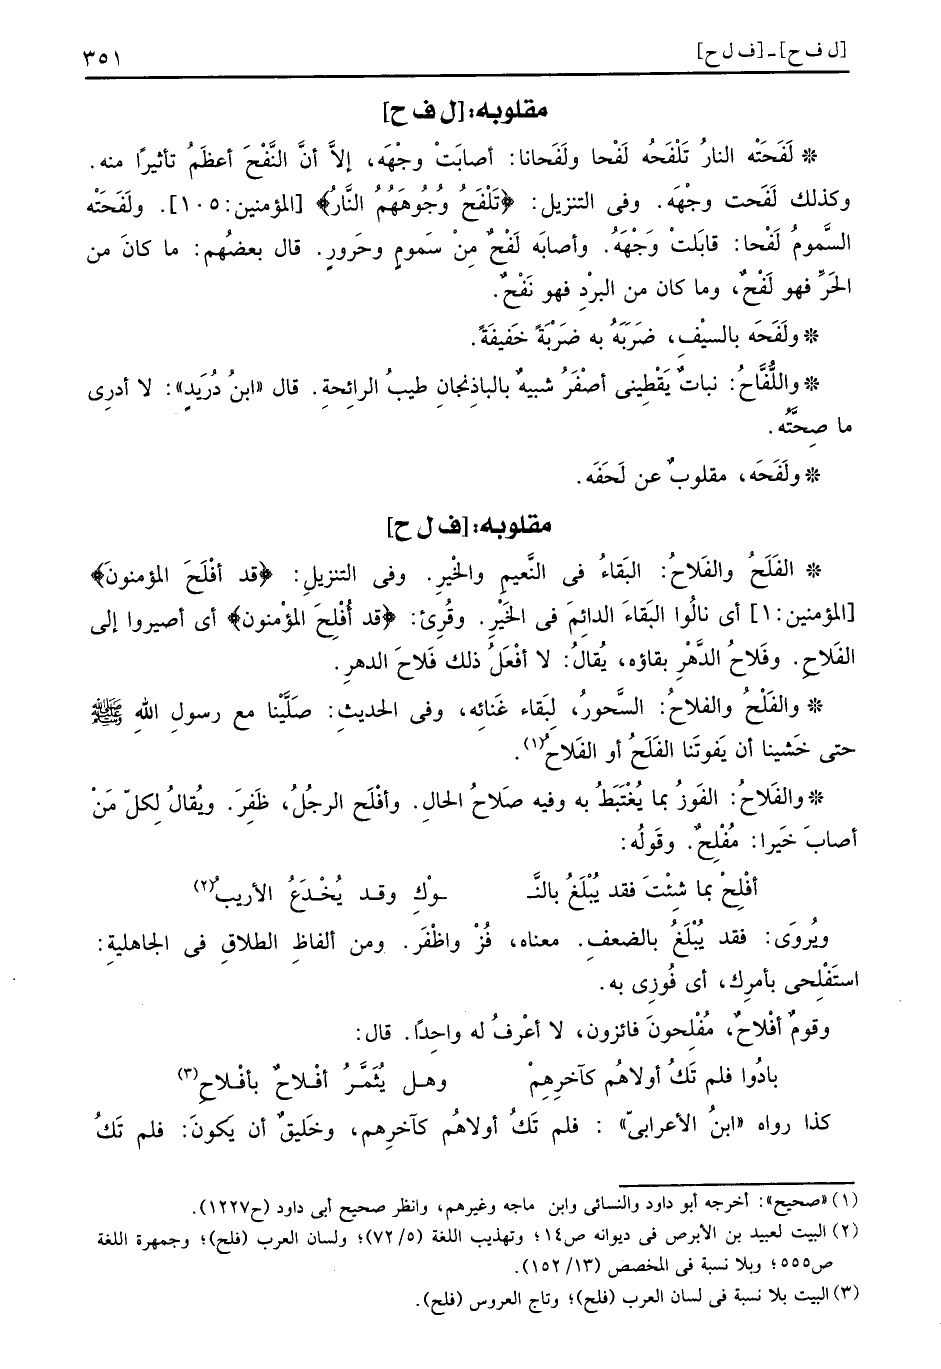 [ل ف ح] - [ف ل ح]
٣٥١
مقلوبه: [ل ف ح]
* لَفَحَتْه النارُ تَلْفَحُه لَفْحا ولَفَحانا: أصابَتْ وجْهَه، إلاَّ أنَّ النَّفْحَ أعظَمُ تأثيرًا منه.
وكذلك لَفَحت وجْهَه. وفى التنزيل: ﴿تَلْفَحُ وُجُوهَهُمُ النَّارُ﴾ [المؤمنين: ١٠٥]. ولَفَحَتْه
السَّمومُ لَفْحا: قابَلَتْ وَجْهَهُ. وأصابَه لَفْحٌ مِنْ سَمومٍ وحَرورٍ. قال بعضُهم: ما كانَ من
الحَرِّ فهو لَفْحٌ، وما كان من البرْدِ فهو نَفْحٌ.
* ولَفَحَه بالسيْفِ، ضَرَبَهُ به ضَرْبَةً خَفيفَةً.
* واللُّفَّاحُ: نباتٌ يَقْطِينى أصْفَرُ شبيهٌ بالباذنجانِ طيبُ الرائحةِ. قال «ابنُ دُرَيدٍ»: لا أدرى
ما صِحَّتُه.
* ولَفَحَه، مقلوبٌ عن لَحَفَه.
مقلوبه: [ف ل ح]
* الفَلَحُ والفَلاحُ: البَقاءُ فى النَّعيمِ والخيْرِ. وفى التنزيلِ: ﴿قد أفْلَحَ المؤمنونَ﴾
[المؤمنين: ١] أى نالُوا البَقاءَ الدائمَ فى الخَيْرِ. وقُرِئ: ﴿قد أُفْلِحَ المؤْمنون﴾ أى أصيروا إلى
الفَلاحِ. وفَلاحُ الدَّهْرِ بقاؤه، يُقالُ: لا أفْعَلُ ذلك فَلاحَ الدهرِ.
* والفَلْحُ والفلاحُ: السَّحورُ، لِبَقاء غَنائه، وفى الحديث: صَلَّيْنا مع رسولِ اللهِ ﷺ
حتى خَشينا أن يَفوتَنا الفَلَحُ أو الفَلاحُ(١).
* والفَلاحُ: الفَوزُ بما يُغْتَبَطُ به وفيه صَلاحُ الحال. وأفْلَح الرجلُ، ظَفِرَ. ويُقالُ لِكلّ مَنْ
أصابَ خَيرا: مُفْلِحٌ. وقَولُه:
أفْلِحْ بما شئْتَ فقد يُبْلَغُ بالنَّـ ـوْكِ وقـد يُخْـدَعُ الأريبُ(٢)
ويُروَى: فقد يُبْلَغُ بالضعفِ. معناه، فُزْ واظْفَرْ. ومن ألفاظِ الطلاقِ فى الجاهلية:
استَفْلِحى بأمرِك، أى فُوزِى به.
وقومٌ أفْلاحٌ، مُفْلِحونَ فائزون، لا أعْرِفُ له واحِدًا. قال:
بادُوا فلم تَكُ أولاهُم كآخرِهِمْ وهـل يُثَمَّـرُ أفْـلاحٌ بأفْـلاحِ(٣)
كذا رواه «ابنُ الأعرابىّ» : فلم تَكُ أولاهُم كآخِرِهم، وخَليقٌ أن يَكونَ: فلم تَكُ
(١) «صحيح»: أخرجه أبو داود والنسائى وابن ماجه وغيرهم، وانظر صحيح أبى داود (ح١٢٢٧).
(٢) البيت لعبيد بن الأبرص فى ديوانه ص١٤؛ وتهذيب اللغة (٥/ ٧٢)؛ ولسان العرب (فلح)؛ وجمهرة اللغة
ص٥٥٥؛ وبلا نسبة فى المخصص (١٣/ ١٥٢).
(٣) البيت بلا نسبة فى لسان العرب (فلح)؛ وتاج العروس (فلح).